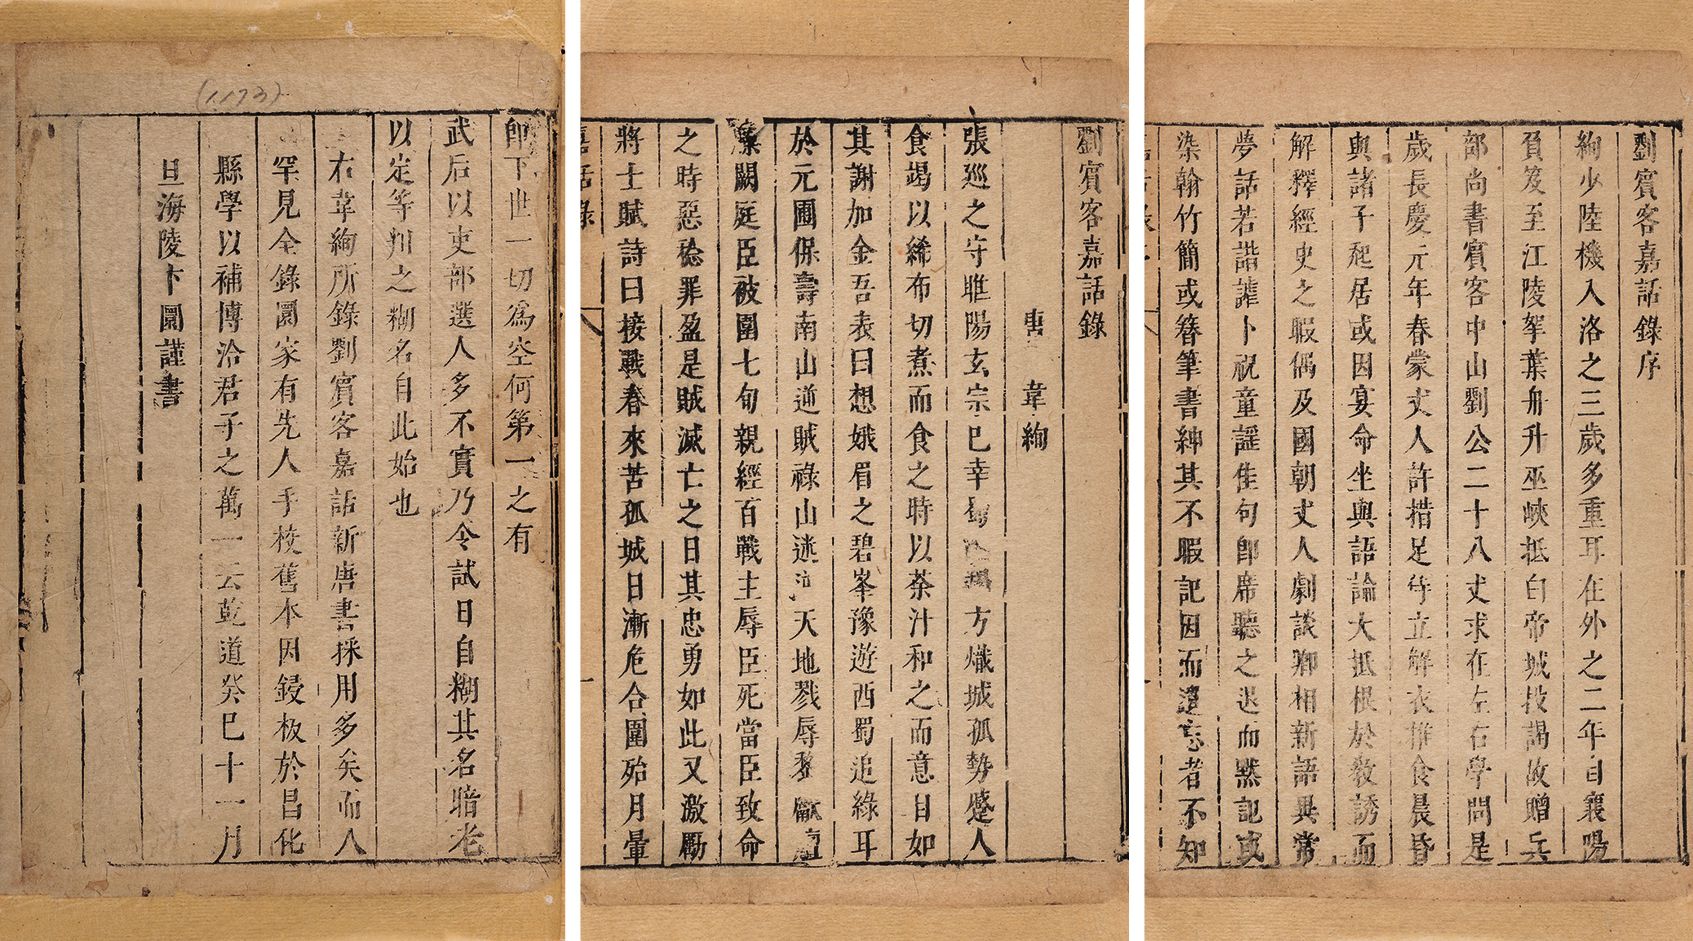 劉賓客嘉話錄序
絢少陸機入洛之三歲多重耳在外之二年自襄陽
負笈至江陵挐葉舟升巫峽抵白帝城投謁故贈兵
部尚書賓客中山劉公二十八丈求在左右學問是
歲長慶元年春蒙丈人許措足侍立解衣推食晨昏
與諸子起居或因宴命坐與語論大抵根於教誘而
解釋經史之暇偶及國朝丈人劇談卿相新語異常
夢話若諧謔卜祝童謠佳句即席聽之退而默記或
染翰竹簡或簪筆書紳其不暇記因而遺忘者不知
劉賓客嘉話錄
唐 韋絢
張巡之守睢陽玄宗已幸蜀 方熾城孤勢蹙人
食竭以紙布切煮而食之時以茶汁和之而意自如
其謝加金吾表曰想娥眉之碧峯豫遊西蜀追綠耳
於元圃保壽南山逆賊祿山迷 天地戮辱黎獻 
 闕庭臣被圍七旬親經百戰主辱臣死當臣致命
之時惡稔罪盈是賊滅亡之日其忠勇如此又激勵
將士賦詩曰接戰春來苦孤城日漸危合圍殆月暈
嘉話錄
一
即下世一切為空何第一之有
武后以吏部選人多不實乃令試日自糊其名暗考
以定等判之糊名自此始也
右韋絢所錄劉賓客嘉話新唐書採用多矣而人
罕見全錄圜家有先人手校舊本因鋟板於昌化
縣學以補博洽君子之萬一云乾道癸巳十一月
旦海陵卞圜謹書
(1173)